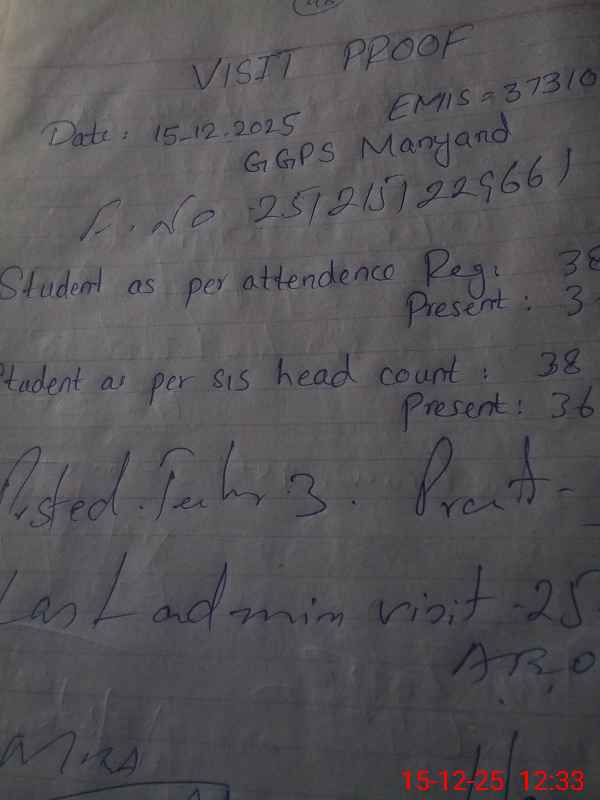 VISIT PROOF
Date: 15-12-2025 EMIS = 37310
GGPS Manyand
Student as per attendence Reg: 38
Present: 3
Student as per sis head count: 38
Present: 36
Posted. 3.
Last admin visit. 25
A.R.O
15-12-25 12:33